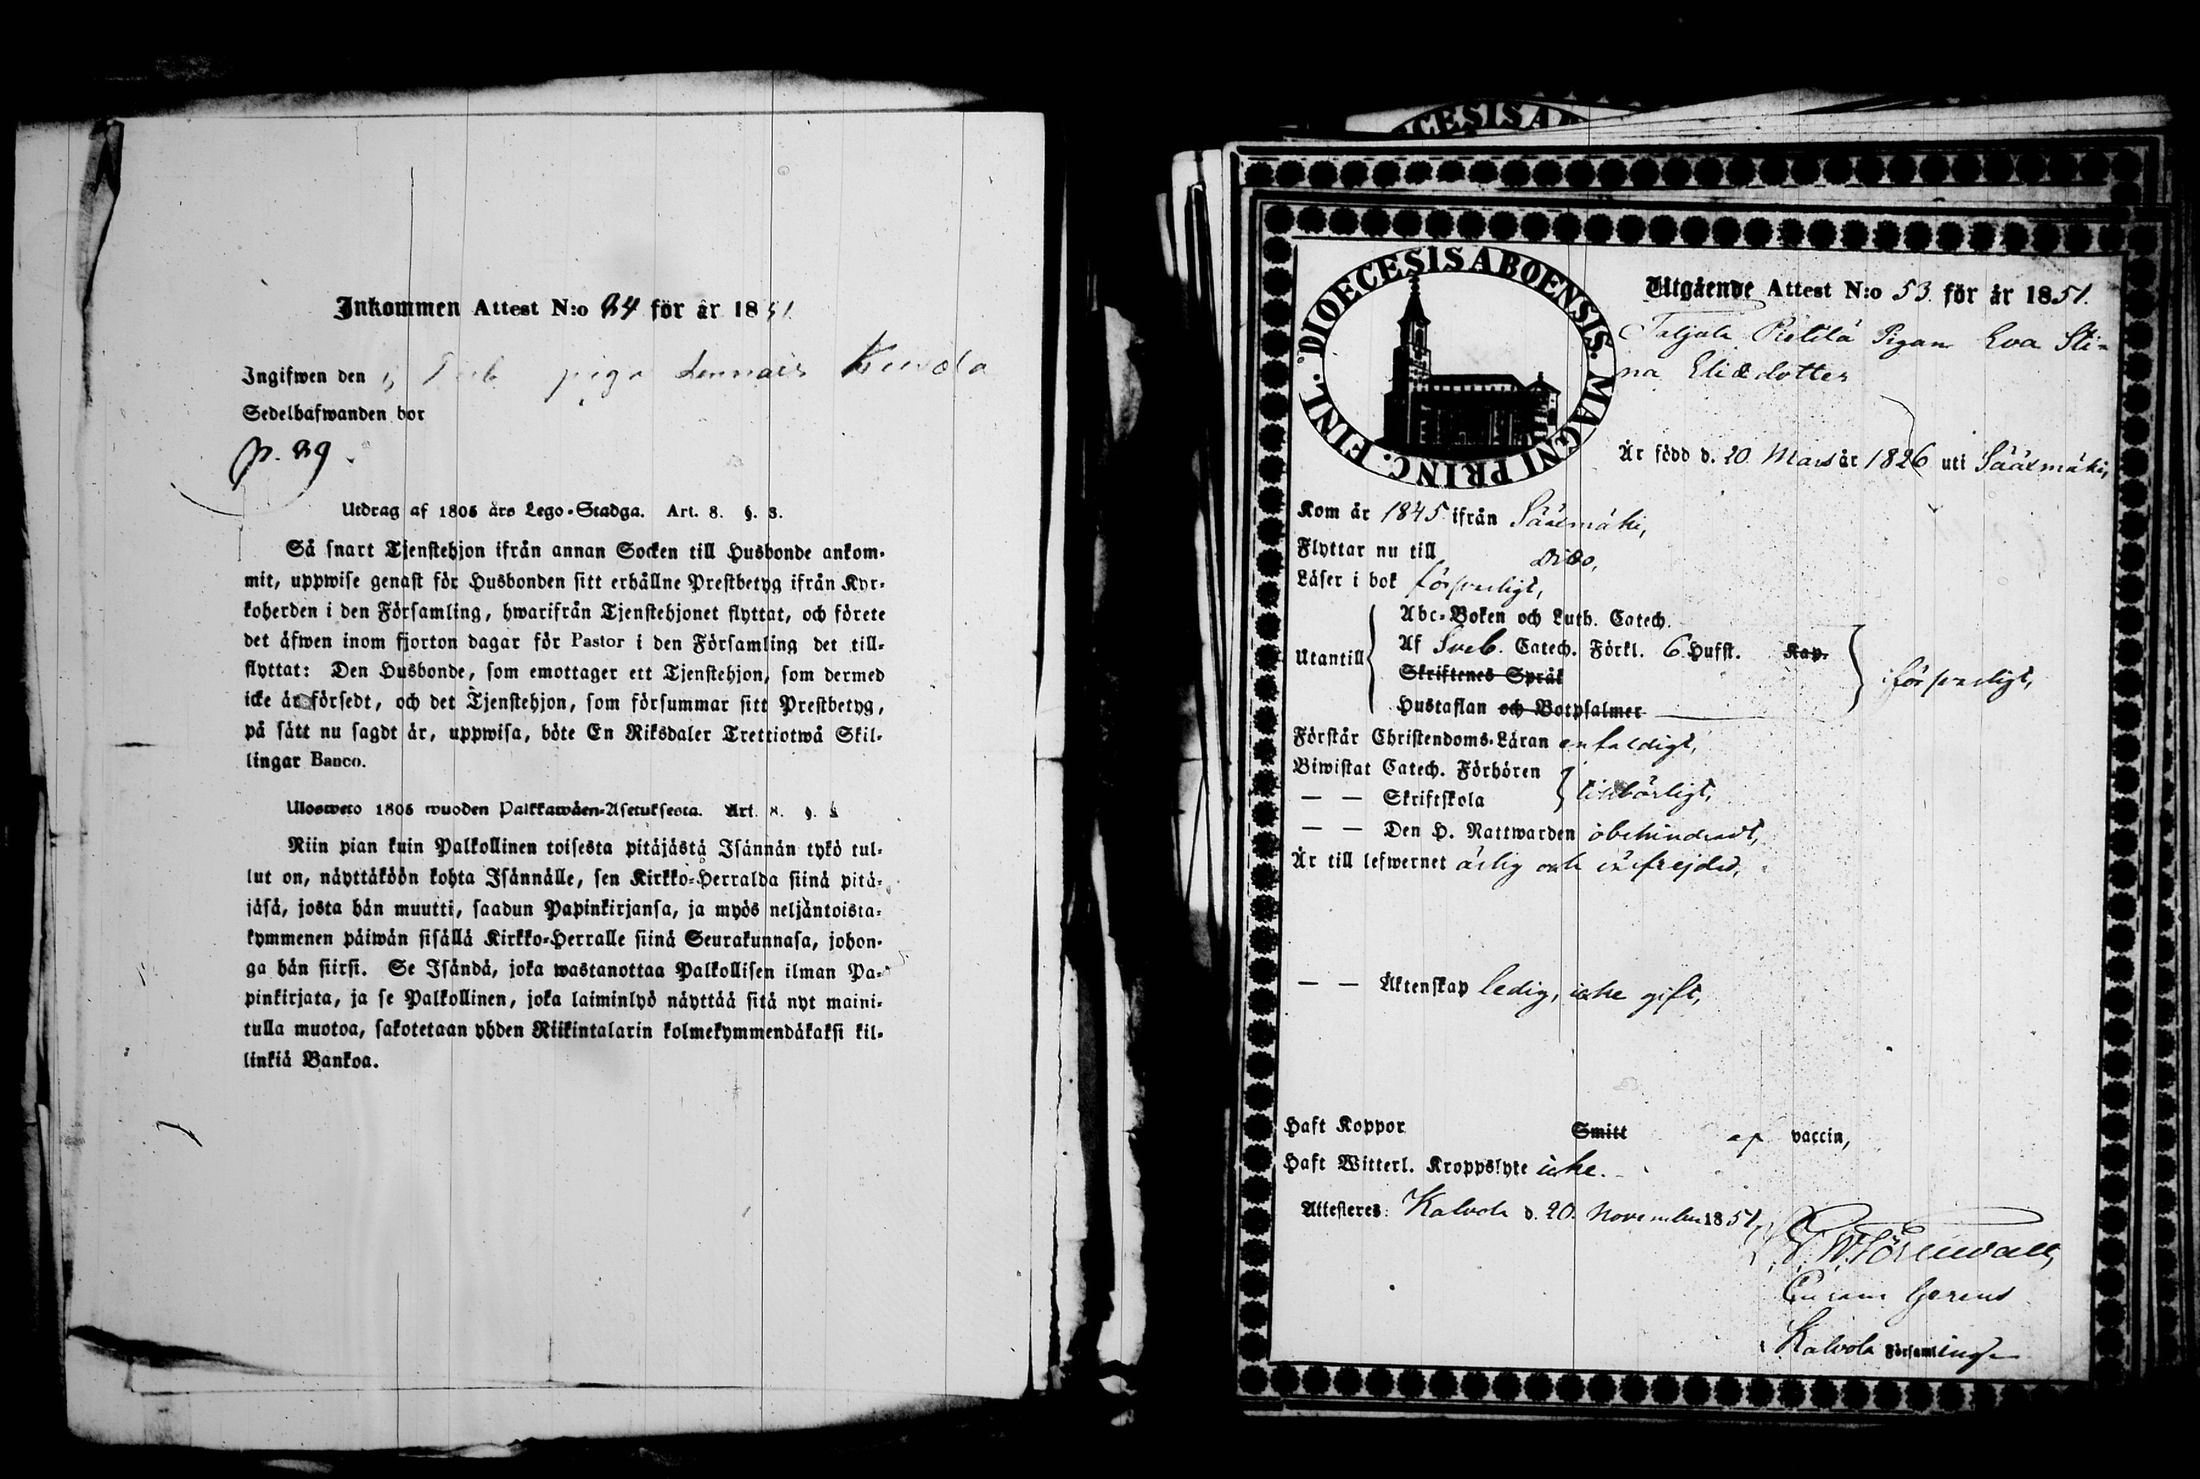 Inkommen Attest N:o 24 för år 1851
Ingifwen den
Sedelhafwanden bor
p. 29.
Utdrag af 1805 års Lego-Stadga. Art. 8. §. 3.
Så snart Tjenstehjon ifrån annan Socken till Husbonde ankom-
mit, uppwise genast för Husbonden sitt erhållne Prestbetyg ifrån Kyr-
koherden i den Församling, hwarifrån Tjenstehjonet flyttat, och förete
det äfwen inom fjorton dagar för Pastor i den Församling det till-
flyttat: Den Husbonde, som emottager ett Tjenstehjon, som dermed
icke är försedt, och det Tjenstehjon, som försummar sitt Prestbetyg,
på sätt nu sagdt är, uppwisa, böte En Riksdaler Trettiotwå Skil-
lingar Banco.
Ulosweto 1805 wuoden Palkkawäen-Asetuksesta. Art. 8. §.
Niin pian kuin Palkollinen toisesta pitäjästä Isännän tykö tul-
lut on, näyttäköön kohta Isännälle, sen Kirkko-Herralda siinä pitä-
jäsä, josta hän muutti, saadun Papinkirjansa, ja myös neljäntoista-
kymmenen päiwän sisällä Kirkko-Herralle siinä Seurakunnasa, johon-
ga hän siirsi. Se Isändä, joka wastanottaa Palkollisen ilman Pa-
pinkirjata, ja se Palkollinen, joka laiminlyö näyttää sitä nyt maini-
tulla muotoa, sakotetaan yhden Riikintalarin kolmekymmendäkaksi kil-
linkiä Bankoa.
DIOECESIS ABOENSIS. MAGNI PRINC. FINL.
Utgående Attest N:o 53. för år 1851.
Taljala Pietilä Pigan Eva Sti-
na Eliædotter
Är född d. 20 Mars år 1826 uti Sääxmäki,
Kom år 1845 ifrån Sääxmäki,
Flyttar nu till Dito,
Läser i bok försvarligt,
Utantill
Abc-Boken och Luth. Catech.
Af Sveb. Catech. Förkl. 6 Hufst. Kap.
Skriftenes Språk
Hustaflan och Botpsalmer
försvarligt,
Förstår Christendoms-Läran enfaldigt,
Biwistat Catech. Förhören
— — Skriftskola
tillbörligt,
— — Den H. Nattwarden obehindradt,
Är till lefwernet ärlig och välfrejdad,
— — Äktenskap ledig, icke gift,
Haft Koppor Smitt af vaccin,
Haft Witterl. Kroppslyte icke.
Attesteres: Kalvola d. 20. November 1851,
Kalvola Församlings